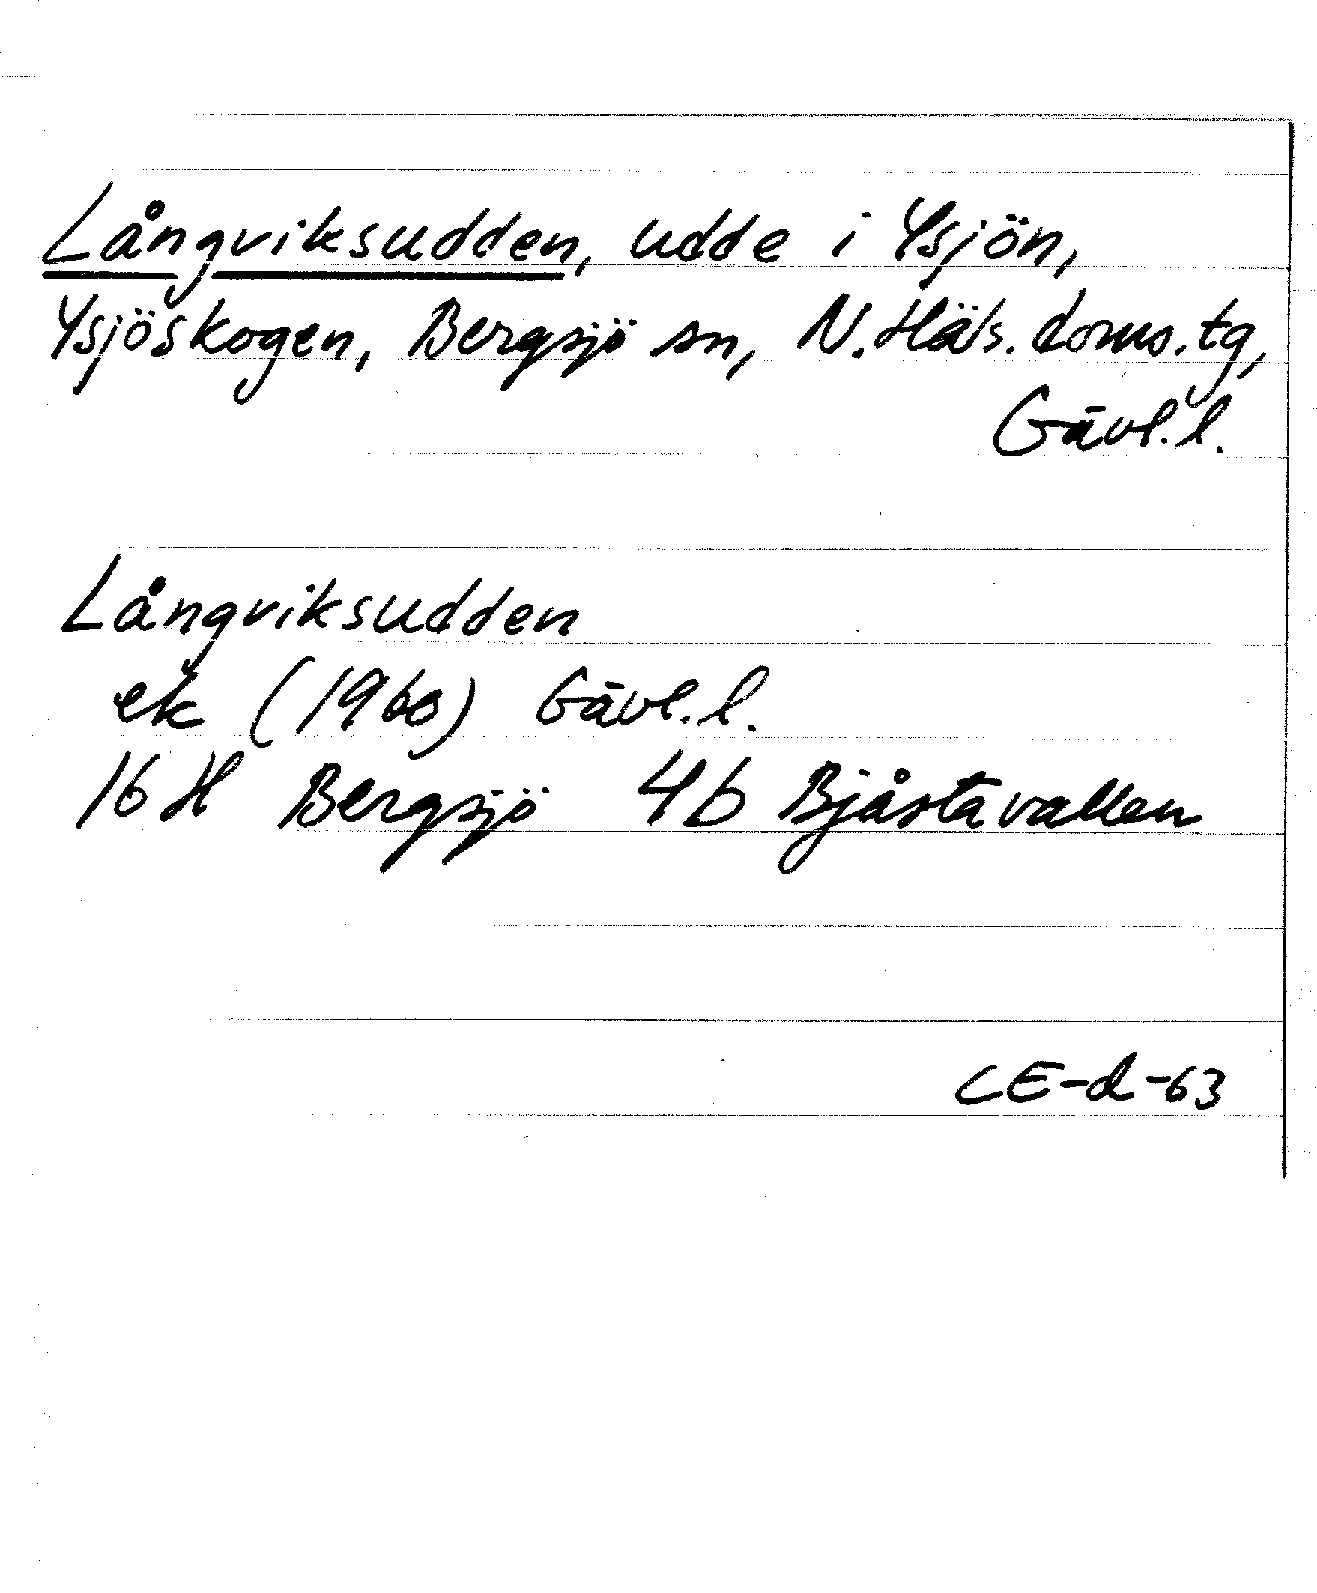 Långviksudden, udde i Ysjön,
Ysjöskogen, Bergsjö sn, N. Häls. doms. tg,
Gävl. l.
Långviksudden
ek (1960) Gävl. l.
16 H Bergsjö 4b Bjåstavallen
CE-d-63